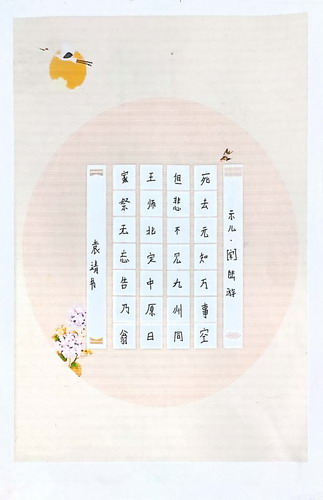 示儿·陆游
死去元知万事空
但悲不见九州同
王师北定中原日
家祭无忘告乃翁
袁靖